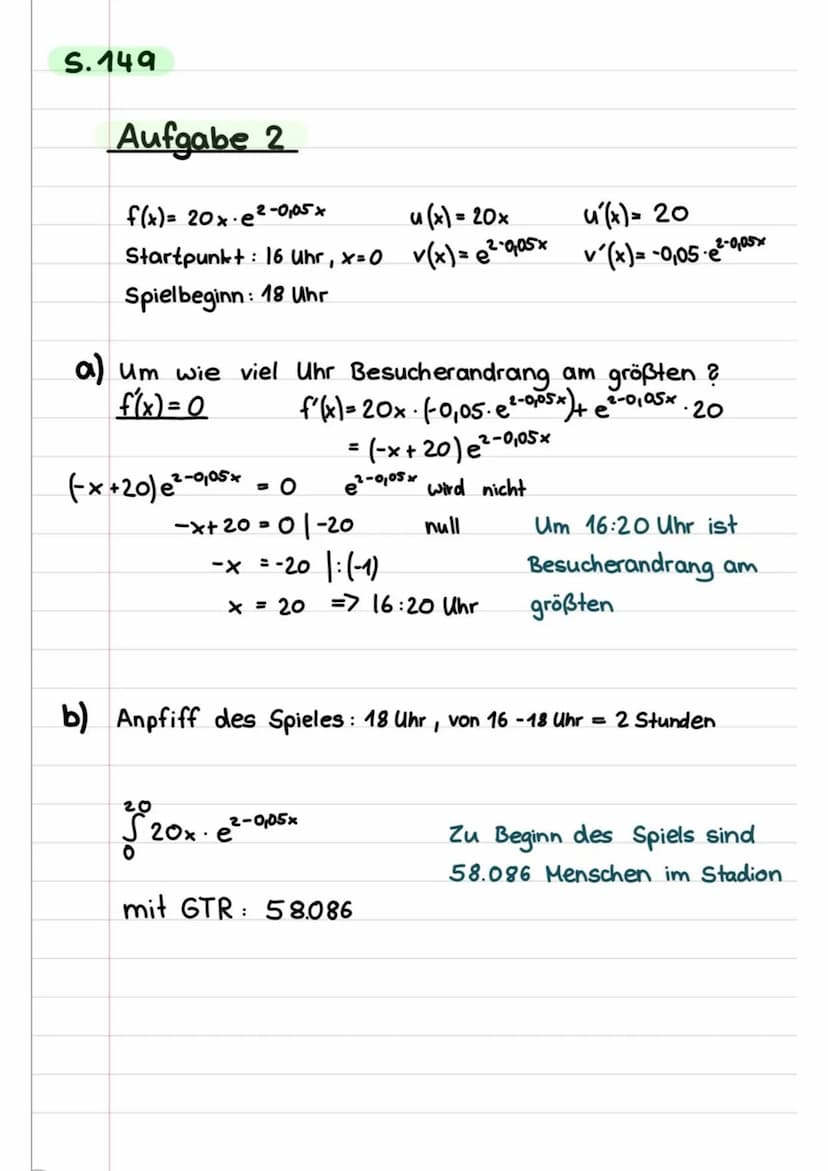 S.149
Aufgabe 2
f(x)= 20x·e^2-0,05x u(x) = 20x u'(x)= 20
Startpunkt : 16 Uhr, x=0 v(x)= e^2-0,05x v'(x)= -0,05·e^2-0,05x
Spielbeginn: 18 Uhr
a) Um wie viel Uhr Besucherandrang am größten ?
f'(x)=0 f'(x)= 20x·(-0,05·e^2-0,05x)+ e^2-0,05x · 20
= (-x+20)e^2-0,05x
(-x+20)e^2-0,05x = 0 e^2-0,05x wird nicht
-x+20 = 0 | -20 null Um 16:20 Uhr ist
-x = -20 |:(-1) Besucherandrang am
x = 20 => 16:20 Uhr größten
b) Anpfiff des Spieles: 18 Uhr, von 16 -18 Uhr = 2 Stunden
20
∫ 20x · e^2-0,05x Zu Beginn des Spiels sind
0 58.086 Menschen im Stadion
mit GTR: 58.086